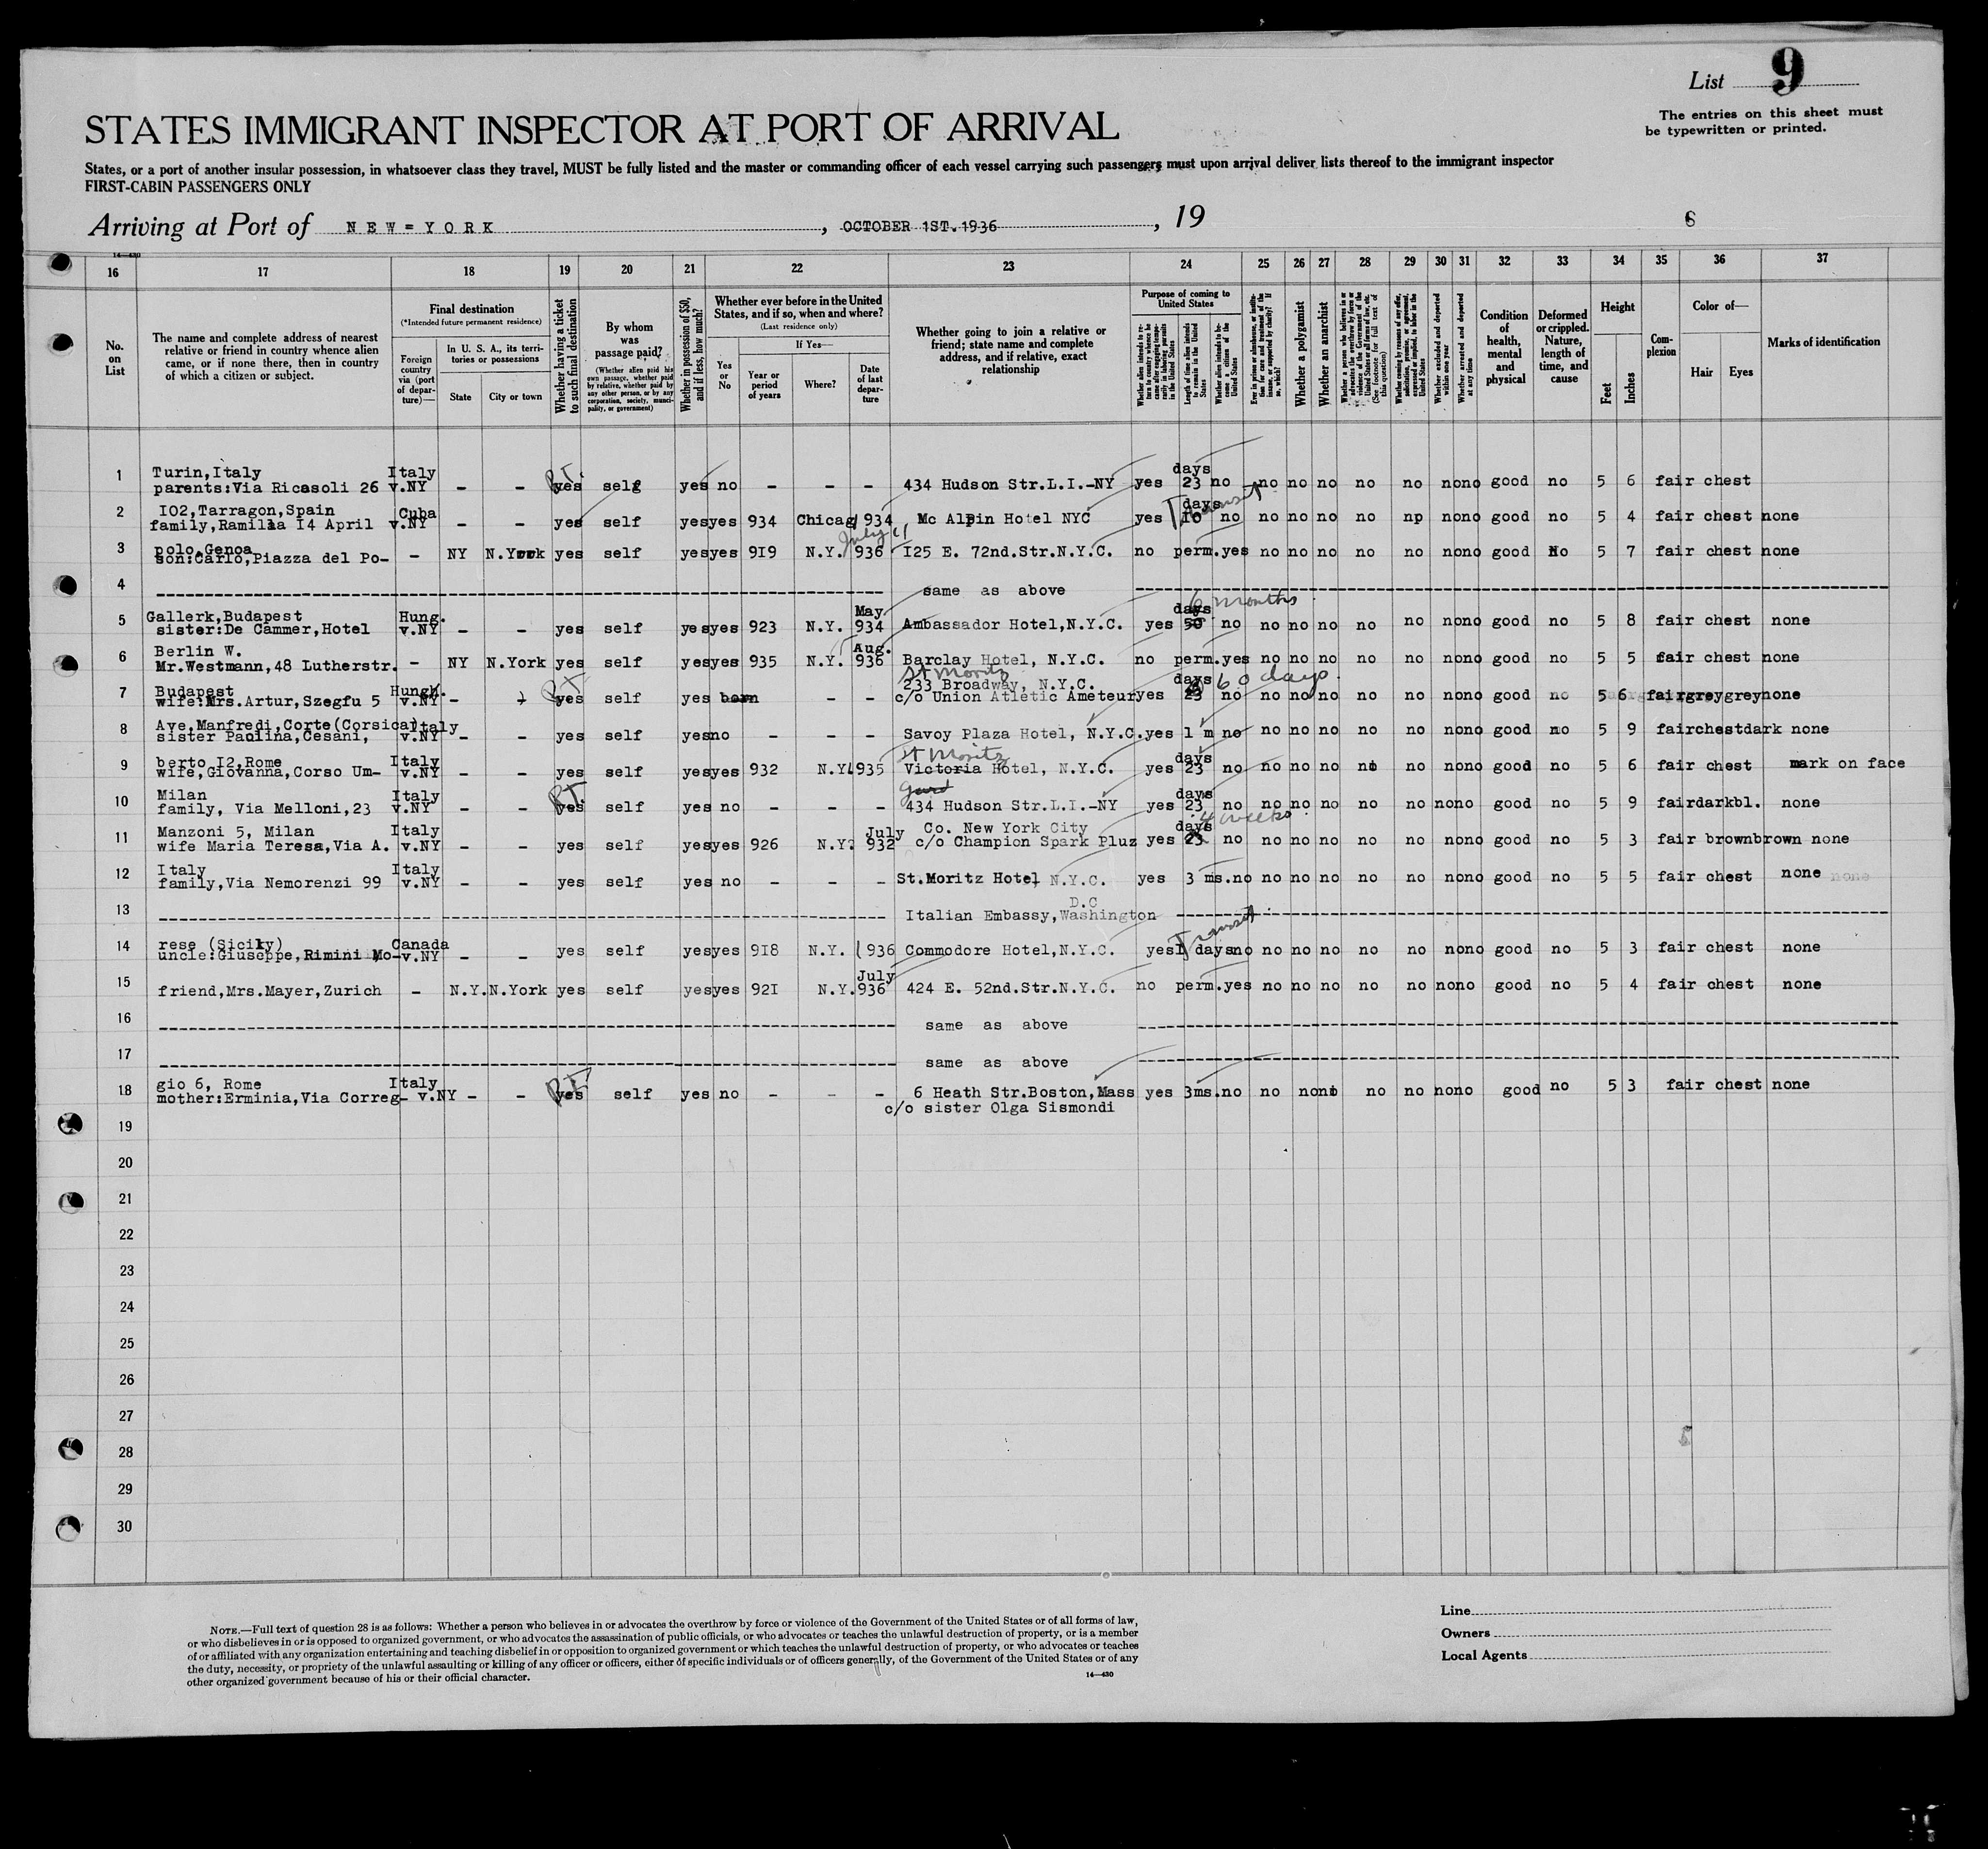 List 9
The entries on this sheet must
be typewritten or printed.
STATES IMMIGRANT INSPECTOR AT PORT OF ARRIVAL
States, or a port of another insular possession, in whatsoever class they travel, MUST be fully listed and the master or commanding officer of each vessel carrying such passengers must upon arrival deliver lists thereof to the immigrant inspector
FIRST-CABIN PASSENGERS ONLY
Arriving at Port of NEW=YORK, OCTOBER 1ST.1936, 19 6
14—430
16 17 18 19 20 21 22 23 24 25 26 27 28 29 30 31 32 33 34 35 36 37
No. on List
The name and complete address of nearest relative or friend in country whence alien came, or if none there, then in country of which a citizen or subject.
Final destination
(*Intended future permanent residence)
Foreign country via (port of departure)—
In U. S. A., its territories or possessions
State
City or town
Whether having a ticket to such final destination
By whom was passage paid?
(Whether alien paid his own passage, whether paid by relative, whether paid by any other person, or by any corporation, society, municipality, or government)
Whether in possession of $50, and if less, how much?
Whether ever before in the United States, and if so, when and where?
(Last residence only)
Yes or No
If Yes—
Year or period of years
Where?
Date of last departure
Whether going to join a relative or friend; state name and complete address, and if relative, exact relationship
Purpose of coming to United States
Length of time alien intends to remain in the United States
Whether alien intends to become a citizen of the United States
Whether a polygamist
Whether an anarchist
Whether excluded and deported within one year
Whether arrested and deported at any time
Condition of health, mental and physical
Deformed or crippled. Nature, length of time, and cause
Height
Feet
Inches
Complexion
Color of—
Hair
Eyes
Marks of identification
Turin,Italy Italy days
1 parents:Via Ricasoli 26 v.NY - - R.T. yes self yes no - - - 434 Hudson Str.L.I.-NY yes 23 no no no no no no nono good no 5 6 fair chest
IO2,Tarragon,Spain Cuba days Transit
2 family,Ramilla I4 April v.NY - - yes self yesyes 934 Chicag 934 Mc Alpin Hotel NYC yes I0 no no no no no np nono good no 5 4 fair chest none
polo,Genoa July
3 son:Carlo,Piazza del Po- - NY N.York yes self yesyes 9I9 N.Y. 936 I25 E. 72nd.Str.N.Y.C. no perm.yes no no no no no nono good No 5 7 fair chest none
4 same as above
Gallerk,Budapest Hung. May days 6 months
5 sister:De Cammer,Hotel v.NY - - yes self yesyes 923 N.Y. 934 Ambassador Hotel,N.Y.C. yes 50 no no no no no no nono good no 5 8 fair chest none
Berlin W. Aug.
6 Mr.Westmann,48 Lutherstr. - NY N.York yes self yesyes 935 N.Y. 936 Barclay Hotel, N.Y.C. no perm.yes no no no no no nono good no 5 5 fair chest none
St Moritz
Budapest Hung. 233 Broadway, N.Y.C. days 60 days
7 wife:Mrs.Artur,Szegfu 5 v.NY - - R.T. yes self yes born - - c/o Union Atletic Ameteur yes 23 no no no no no no nono good no 5 6 fairgreygreynone
Ave,Manfredi,Corte(Corsica) Italy
8 sister Paolina,Cesani, v.NY - - yes self yesno - - - Savoy Plaza Hotel, N.Y.C.yes 1 m no no no no no no nono good no 5 9 fairchestdark none
St Moritz
berto I2,Rome Italy days
9 wife,Giovanna,Corso Um- v.NY - - yes self yesyes 932 N.Y. 935 Victoria Hotel, N.Y.C. yes 23 no no no no no no nono good no 5 6 fair chest mark on face
Milan Italy days
10 family, Via Melloni,23 v.NY - - R.T. yes self yes no - - - 434 Hudson Str.L.I.-NY yes 23 no no no no no no nono good no 5 9 fairdarkbl. none
Manzoni 5, Milan Italy July Co. New York City days 4 weeks
11 wife Maria Teresa,Via A. v.NY - - yes self yesyes 926 N.Y. 932 c/o Champion Spark Pluz yes 23 no no no no no no nono good no 5 3 fair brownbrown none
Italy Italy
12 family,Via Nemorenzi 99 v.NY - - yes self yes no - - - St.Moritz Hotel N.Y.C. yes 3 ms.no no no no no no nono good no 5 5 fair chest none none
D.C
13 Italian Embassy,Washington
rese (Sicily) Canada Transit
14 uncle:Giuseppe,Rimini Mo- v.NY - - yes self yesyes 9I8 N.Y. 936 Commodore Hotel,N.Y.C. yes days no no no no no no nono good no 5 3 fair chest none
July
15 friend,Mrs.Mayer,Zurich - N.Y.N.York yes self yesyes 92I N.Y. 936 424 E. 52nd.Str.N.Y.C. no perm.yes no no no no no nono good no 5 4 fair chest none
16 same as above
17 same as above
gio 6, Rome Italy
18 mother:Erminia,Via Correg- v.NY - - R.T. yes self yes no - - - 6 Heath Str.Boston,Mass yes 3ms.no no nono no no nono good no 5 3 fair chest none
c/o sister Olga Sismondi
19
20
21
22
23
24
25
26
27
28
29
30
NOTE.—Full text of question 28 is as follows: Whether a person who believes in or advocates the overthrow by force or violence of the Government of the United States or of all forms of law,
or who disbelieves in or is opposed to organized government, or who advocates the assassination of public officials, or who advocates or teaches the unlawful destruction of property, or is a member
of or affiliated with any organization entertaining and teaching disbelief in or opposition to organized government or which teaches the unlawful destruction of property, or who advocates or teaches
the duty, necessity, or propriety of the unlawful assaulting or killing of any officer or officers, either of specific individuals or of officers generally, of the Government of the United States or of any
other organized government because of his or their official character.
14—430
Line
Owners
Local Agents